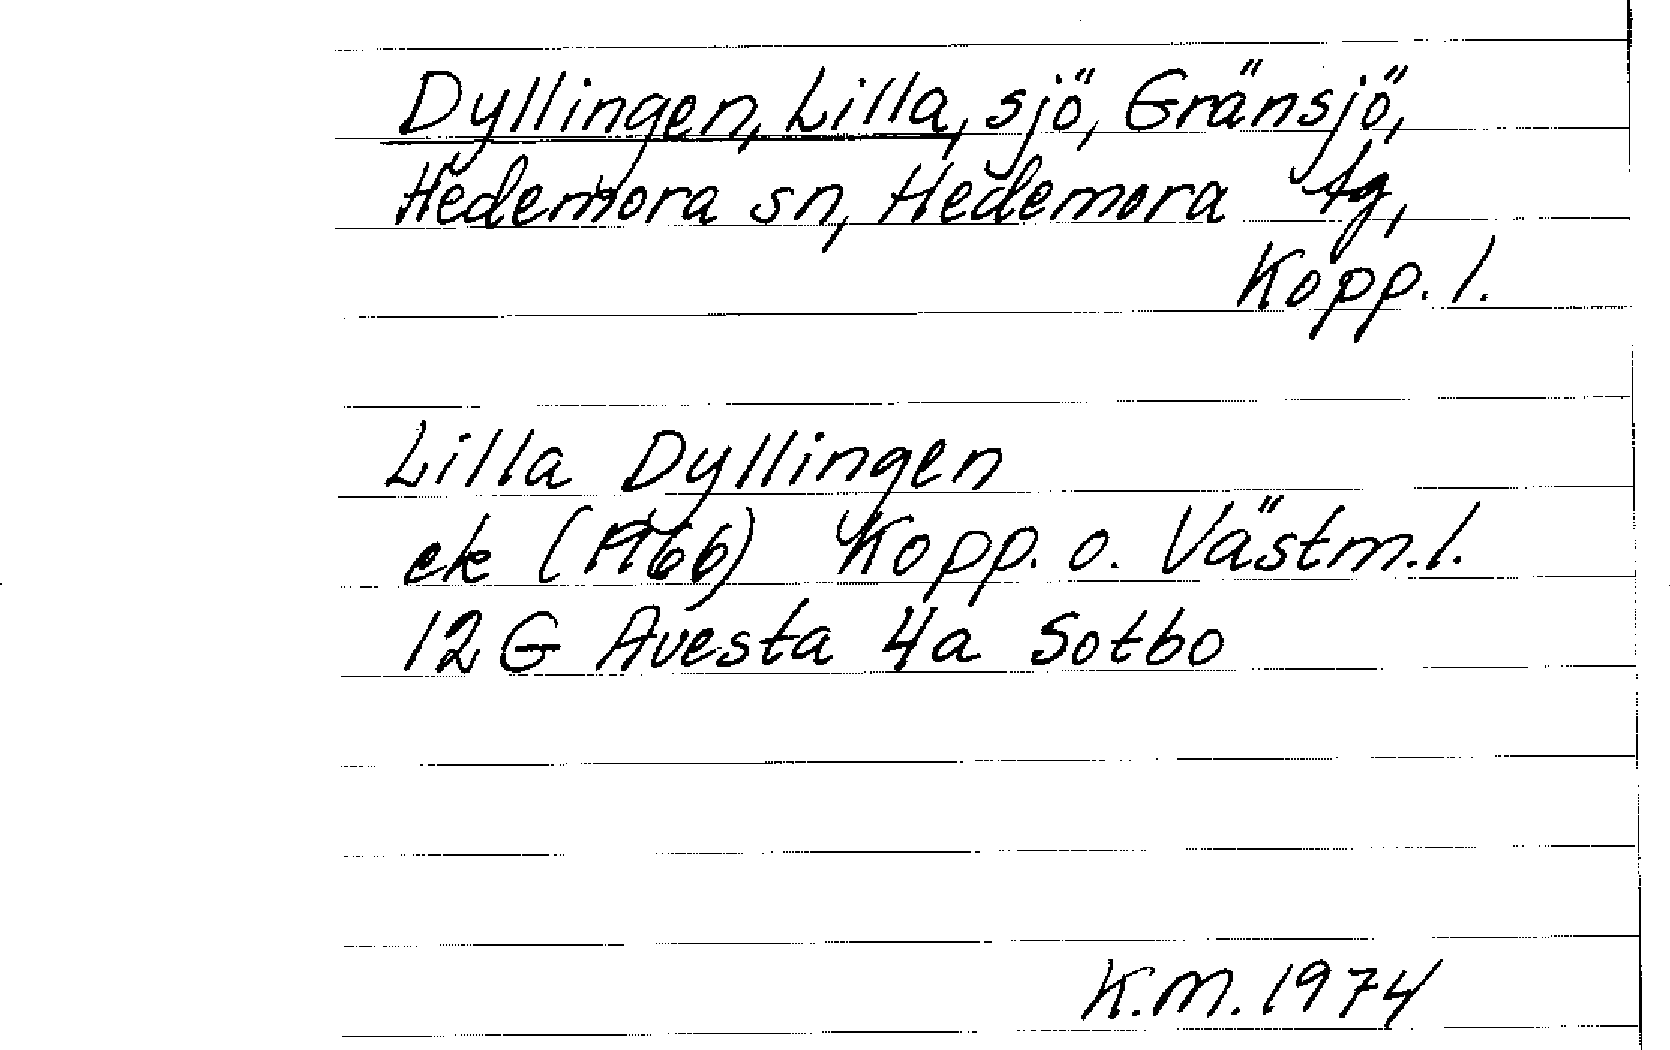 Dyllingen, Lilla, sjö, Gränsjö,
Hedemora sn, Hedemora tg,
Kopp. l.
Lilla Dyllingen
ek (1966) Kopp. o. Västm. l.
12 G Avesta 4a Sotbo
K.M. 1974